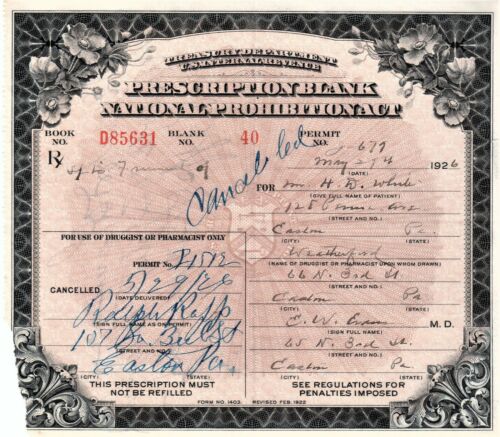 TREASURY DEPARTMENT
U.S. INTERNAL REVENUE
PRESCRIPTION BLANK
NATIONAL PROHIBITION ACT
BOOK NO. D85631 BLANK NO. 40 PERMIT NO. 679
May 29 1926
(DATE)
Rx
Cancelled
FOR H. D. White
(GIVE FULL NAME OF PATIENT)
128
(STREET AND NO.)
Easton Pa.
(CITY) (STATE)
Weatherford
(NAME OF DRUGGIST OR PHARMACIST UPON WHOM DRAWN)
66 N. 3rd St.
(STREET AND NO.)
Easton Pa
(CITY) (STATE)
E. W. Evans M. D.
(SIGN FULL NAME)
65 N. 3rd St
(STREET AND NO.)
Easton Pa.
(CITY) (STATE)
SEE REGULATIONS FOR
PENALTIES IMPOSED
FOR USE OF DRUGGIST OR PHARMACIST ONLY
PERMIT NO.
CANCELLED 5/29/26
(DATE DELIVERED)
Ralph Rapp
(SIGN FULL NAME AS ON PERMIT)
107
(STREET AND NO.)
Easton Pa
(CITY) (STATE)
THIS PRESCRIPTION MUST
NOT BE REFILLED
FORM NO. 1403. REVISED FEB. 1922